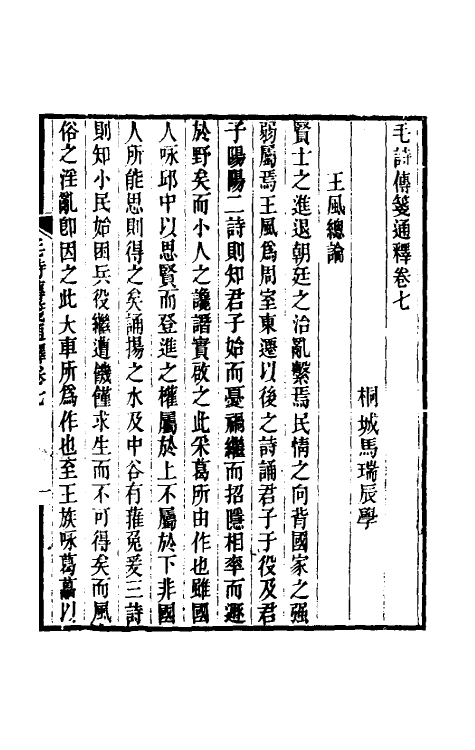 毛詩傳箋通釋卷七
桐城馬瑞辰學
王風總論
賢士之進退朝廷之治亂繫焉民情之向背國家之强
弱屬焉王風爲周室東遷以後之詩誦君子于役及君
子陽陽二詩則知君子始而憂禍繼而招隱相率而遯
於野矣而小人之讒譖實啟之此采葛所由作也雖國
人咏邱中以思賢而登進之權屬於上不屬於下非國
人所能思則得之矣誦揚之水及中谷有蓷兔爰三詩
則知小民始困兵役繼遭饑饉求生而不可得矣而風
俗之淫亂卽因之此大車所爲作也至王族咏葛藟以
毛詩傳箋通釋卷七
一